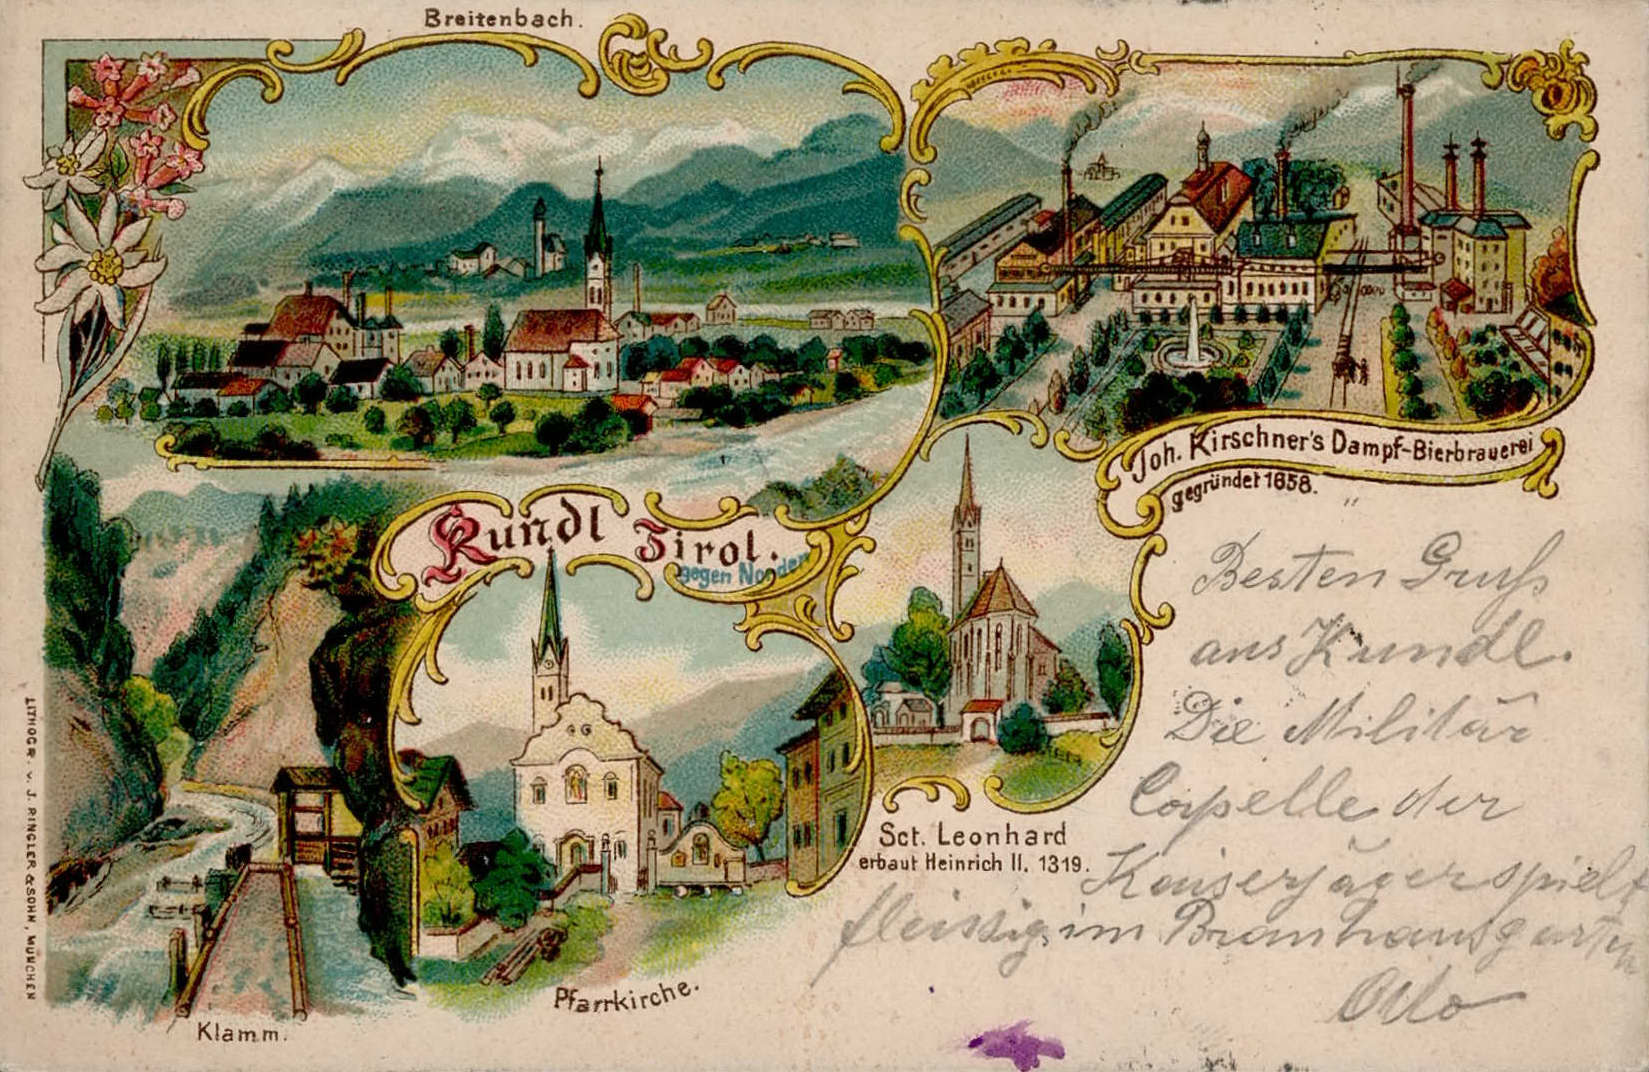 Breitenbach.
Kundl Tirol.
gegen Norden
Joh. Kirschner's Dampf-Bierbrauerei
gegründet 1658.
Sct. Leonhard
erbaut Heinrich II. 1319.
Pfarrkirche.
Klamm.
LITHOGR. v. J. RINGLER & SOHN, MÜNCHEN
Besten Gruß
aus Kundl.
Die Militär
Capelle der
Kaiserjäger spielt
fleissig im Brauhausgarten
Otto